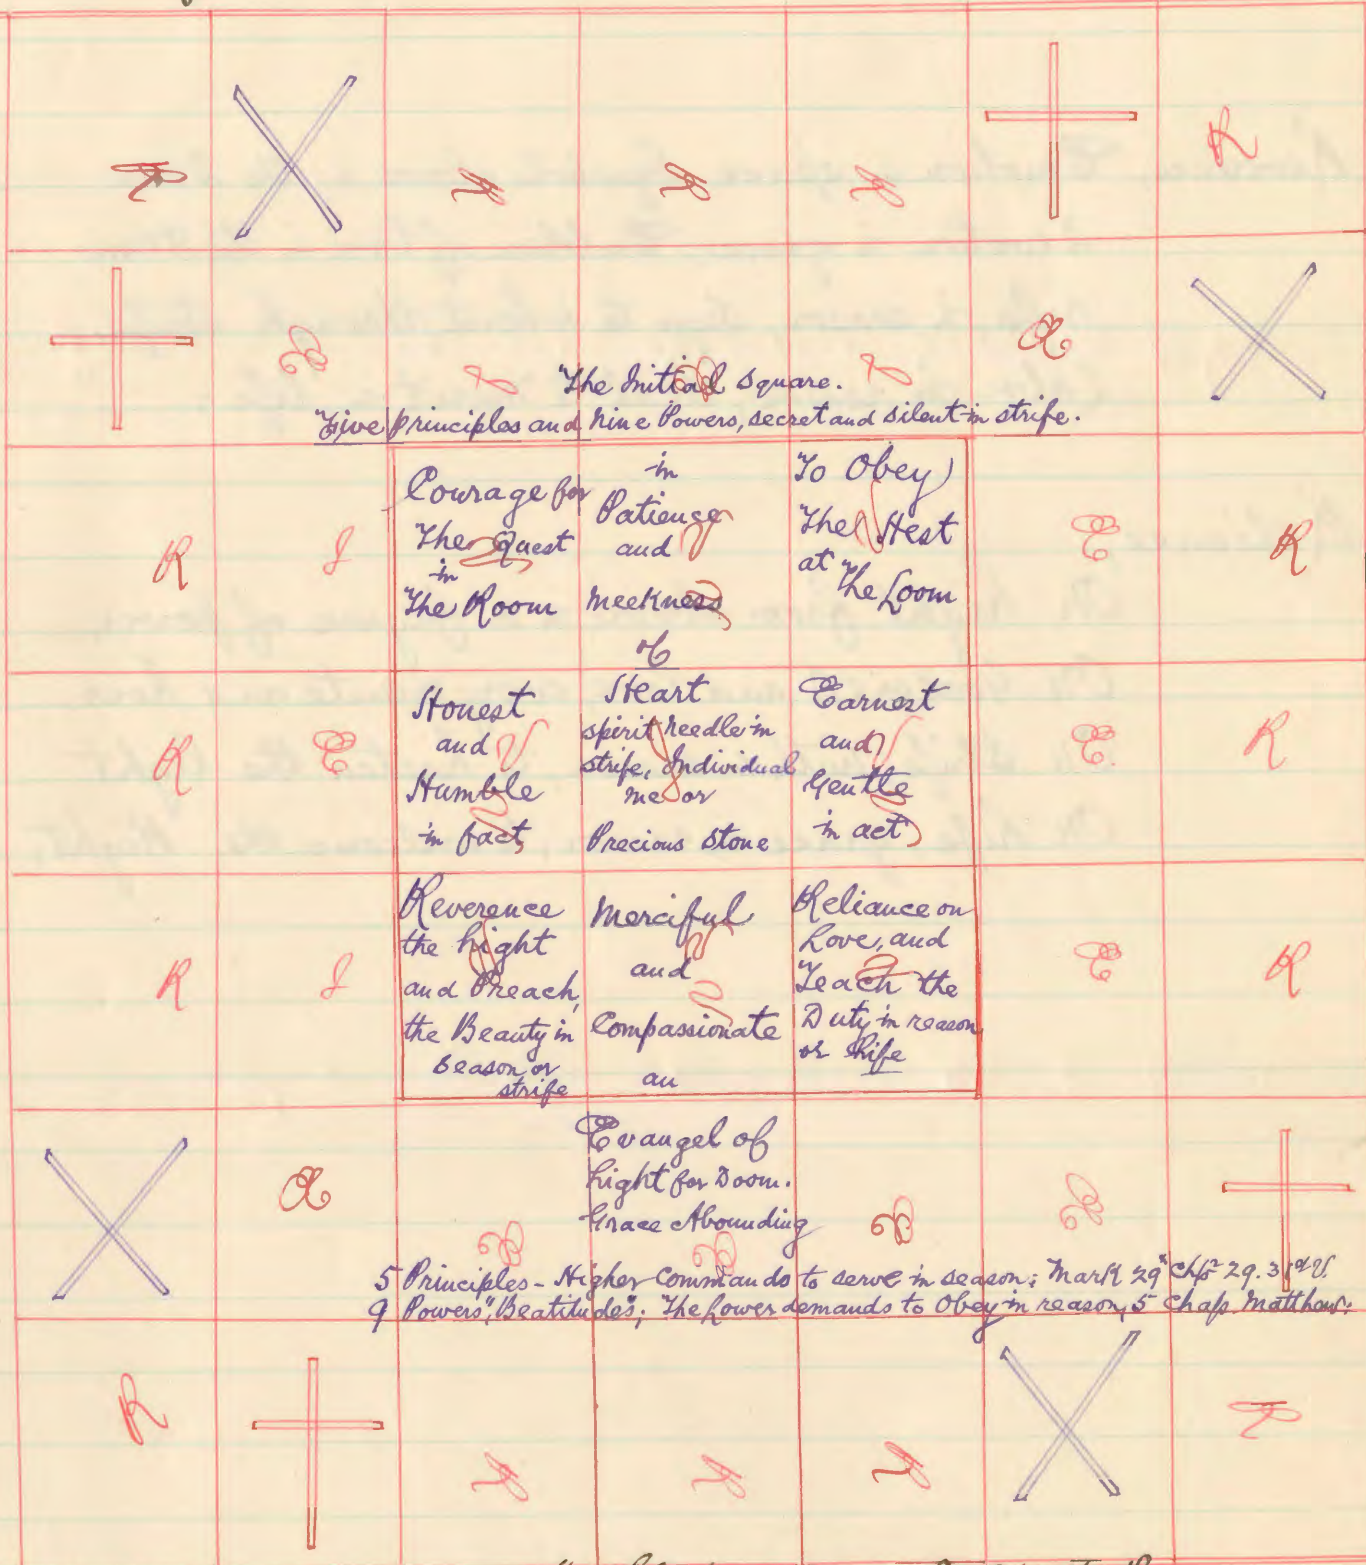 R
R
"The Initial Square.
"Five Principles and Nine Powers, secret and silent in strife.
Courage for
The Quest
in
The Room
in
Patience
and
Meekness
of
To Obey
The Hest
at The Loom
Honest
and
Humble
in fact,
Heart
spirit needle in
strife, Individual
me or
Precious Stone
Earnest
and
Gentle
in act
Reverence
the Light
and Preach,
the Beauty in
season or
strife
Merciful
and
Compassionate
an
Reliance on
Love, and
Teach the
Duty in reason
or life
R
I
E
R
R
E
E
R
R
I
E
R
Evangel of
Light for Doom.
Grace Abounding
5 Principles - Higher Commands to serve in season; Mark 29" Chp 29. 31st V.
9 Powers, "Beatitudes"; The Lower demands to Obey in reason, 5 Chap. Matthew.
R